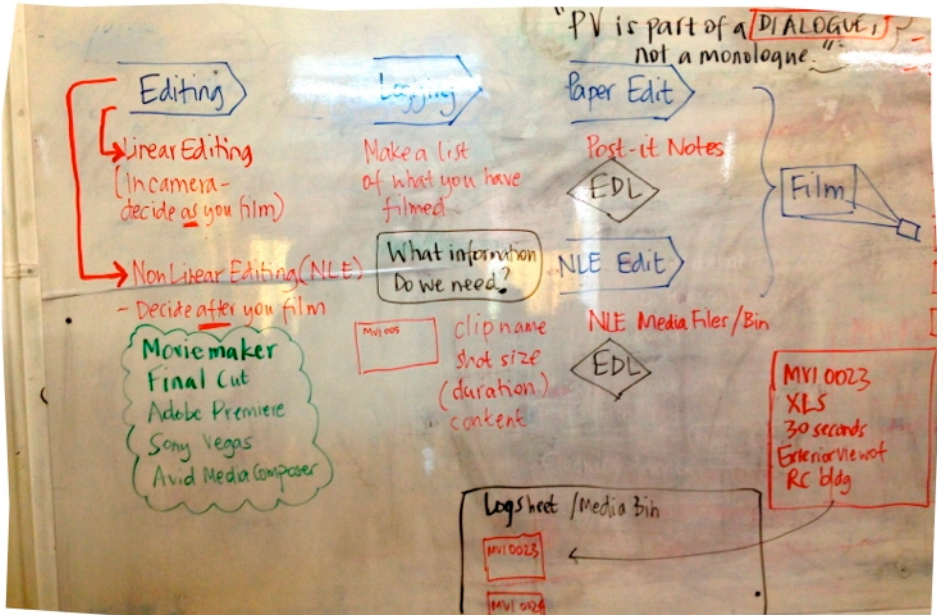 "PV is part of a DIALOGUE,
not a monologue."
Editing
Linear Editing
(In camera-
decide as you film)
Non Linear Editing (NLE)
- Decide after you film
Moviemaker
Final Cut
Adobe Premiere
Sony Vegas
Avid Media Composer
Logging
Make a list
of what you have
filmed
What information
Do we need?
MVI 005
clip name
shot size
(duration)
content
Paper Edit
Post-it Notes
EDL
NLE Edit
NLE Media Files/Bin
EDL
Film
MVI 0023
XLS
30 seconds
Exterior view of
RC bldg
Logsheet / Media Bin
MVI 0023
MVI 0024